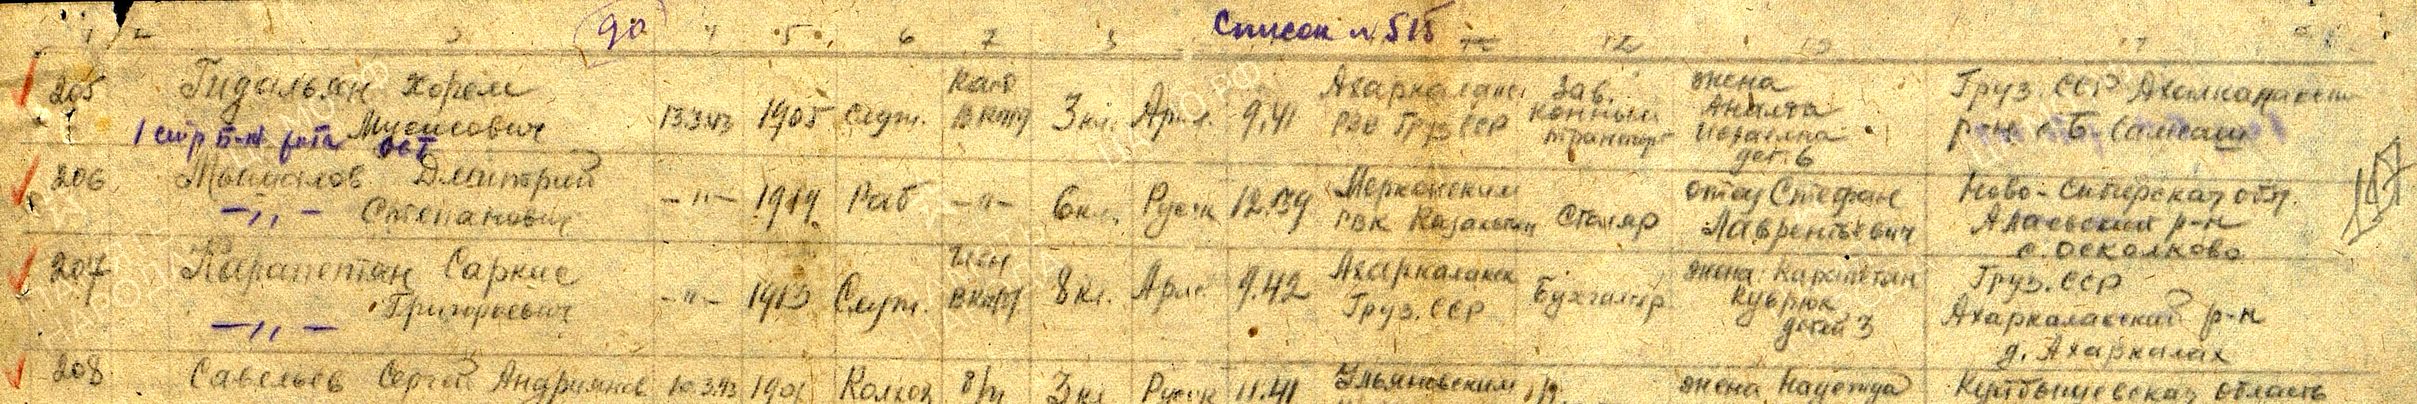 1 2 3 90 4 5 6 7 8 Список № 515 12 13
205 Гидальян Хорен Мусисович 13.3.43 1905 Служ. Канд ВКПб 3 кл. Арм. 9.41 Ахаркалакс РВК Груз ССР Зав. Конным транспорт жена дет. 6 Груз. ССР Ахалкалакски р-н с. Б.
1 стр б-н рота
206 Дмитрий Степанович -"- 1919 Раб -"- 6 кл. Русск 12.39 РВК Казахстан Столяр отец Стефан Лаврентьевич Ново-Сибирская обл. Алаевский р-н с. Осколково
-"-
207 Карапетян Саркис Григорьевич -"- 1913 Служ. Член ВКПб 8 кл. Арм. 9.42 Ахаркалакск Груз. ССР Бухгалтер жена Карапетян детей 3 Груз. ССР Ахаркалакский р-н д. Ахаркалах
-"-
208 Савельев Сергей Андриянов 10.3.43 Колхоз б/п 3 кл Русск 11.41 Ульяновским жена Надежда Куйбышевская область